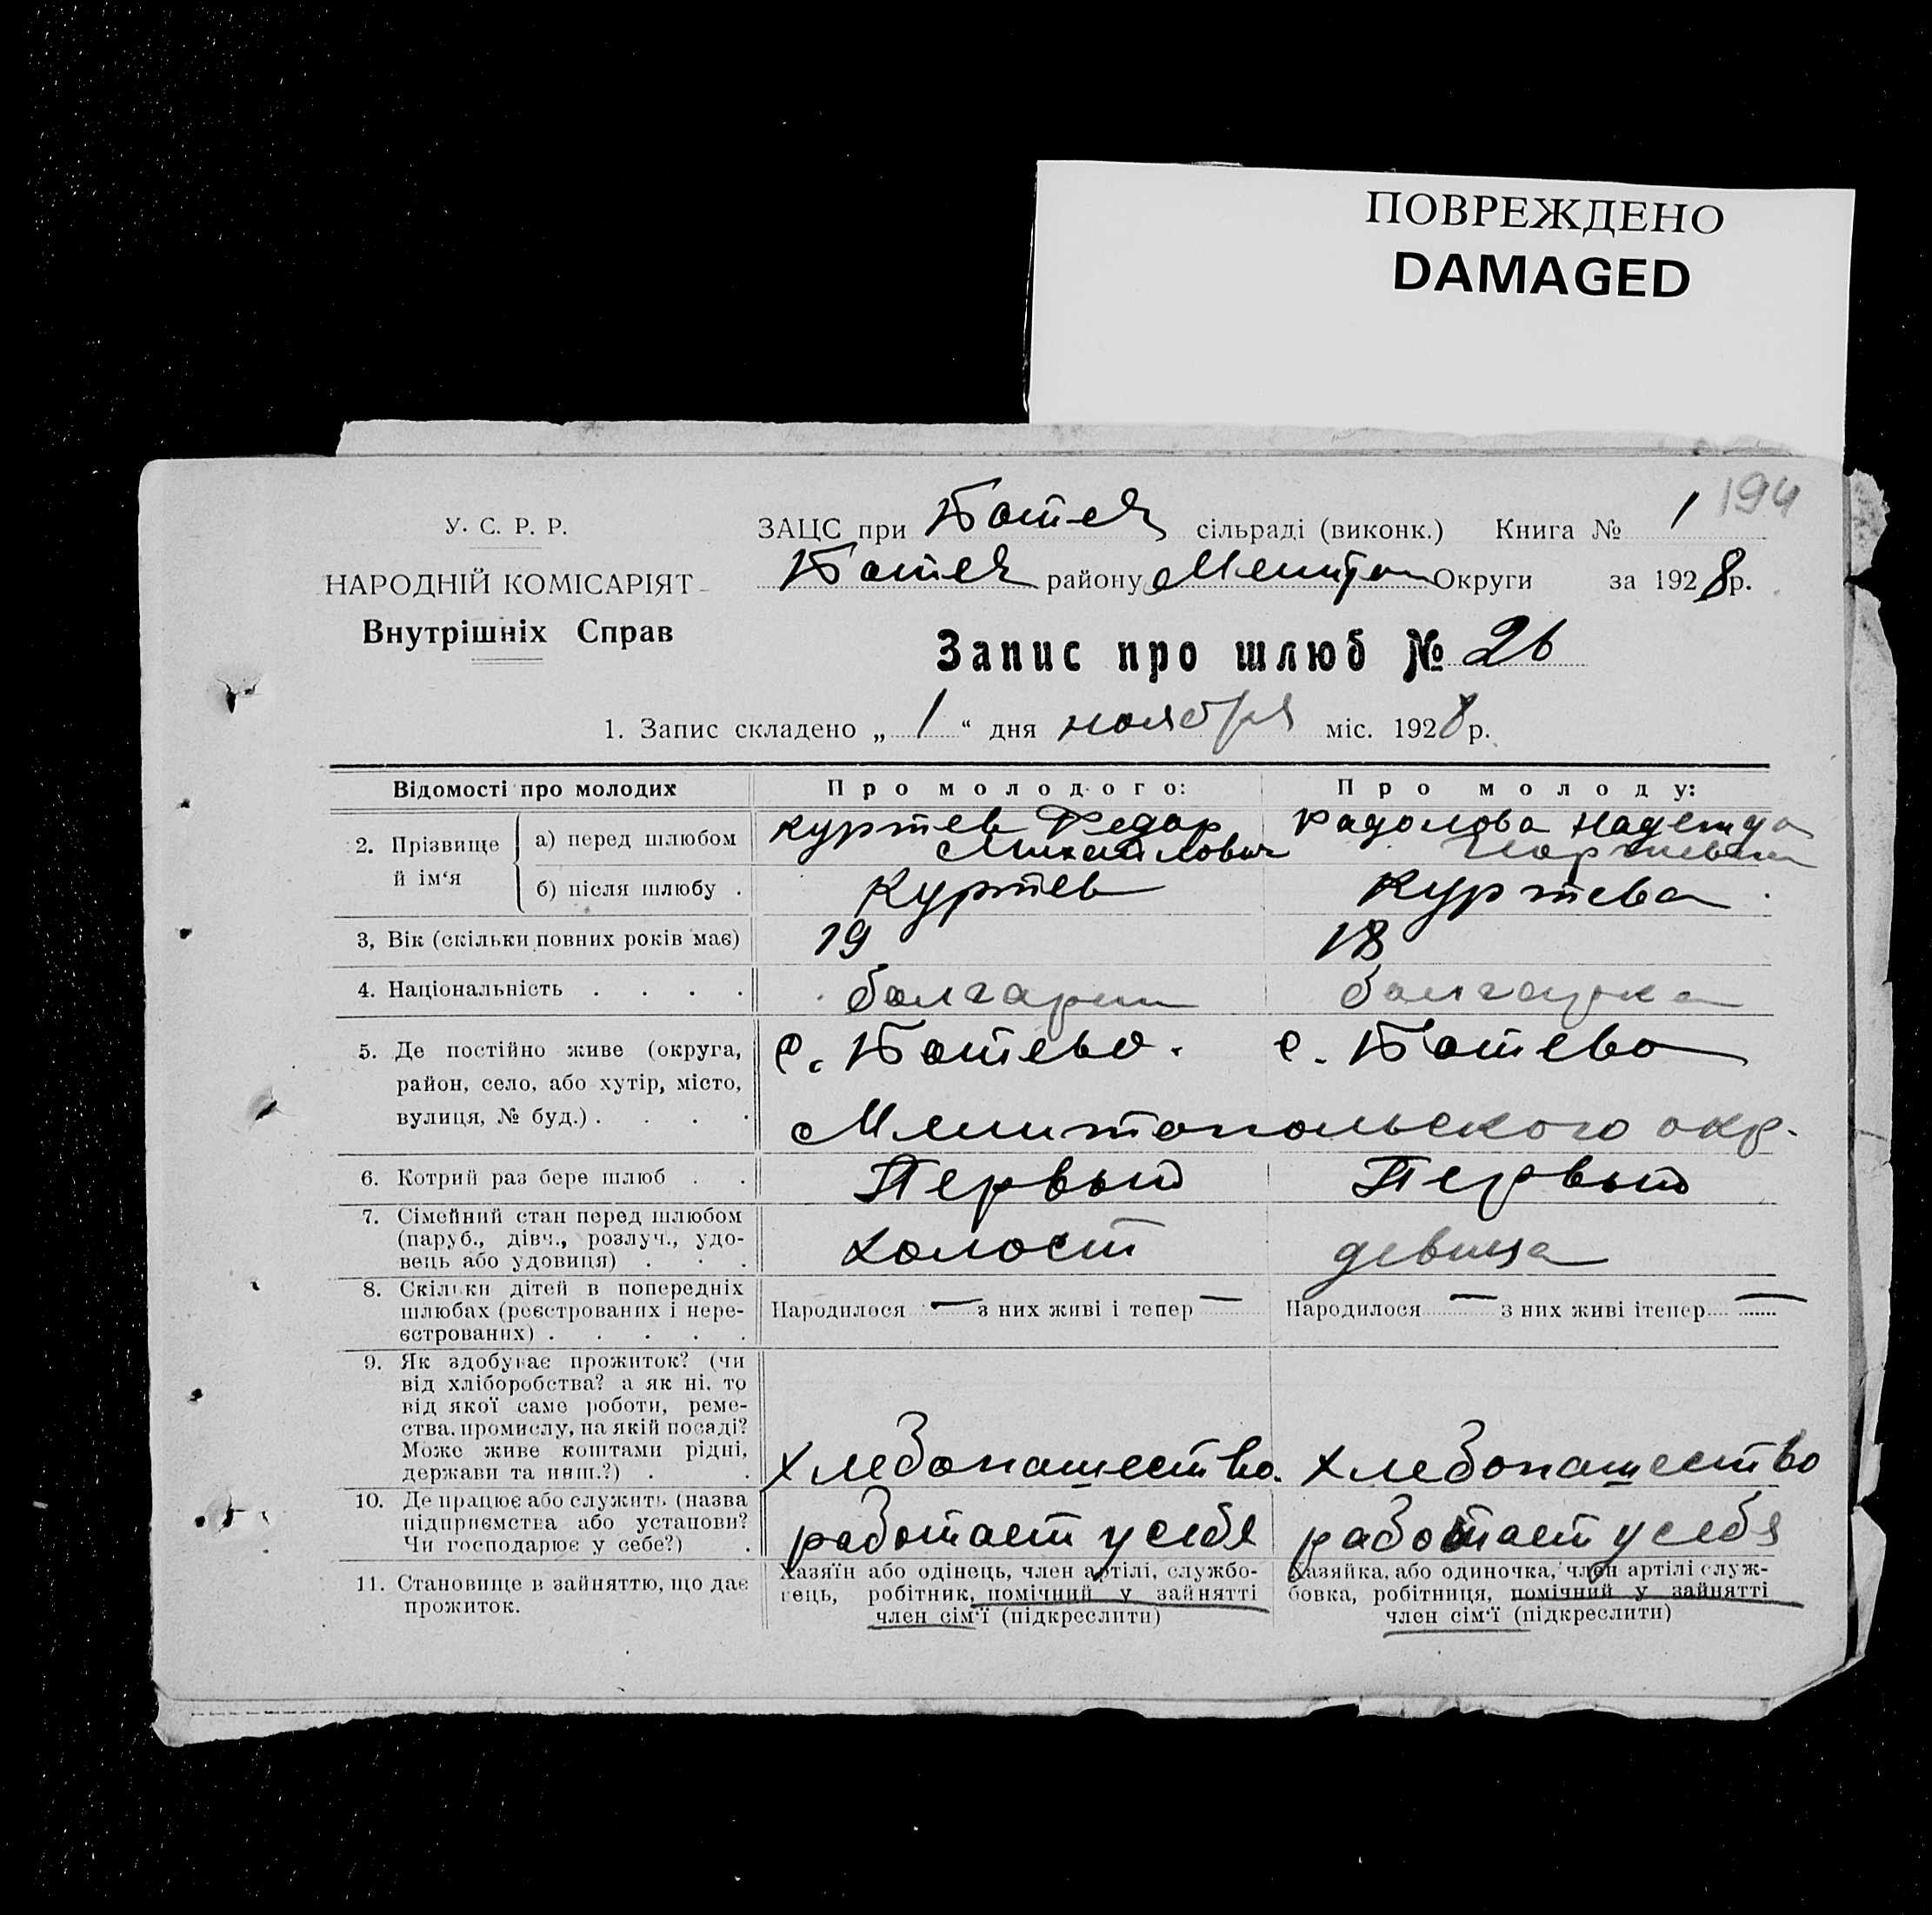 ПОВРЕЖДЕНО
DAMAGED
194
У. С. Р. Р.
НАРОДНІЙ КОМІСАРІЯТ
Внутрішніх Справ
ЗАЦС при Ботев сільраді (виконк.) Книга № 1
Ботев району Мелитоп Округи за 1928 р.
Запис про шлюб № 26
1. Запис складено „ 1 “ дня ноября міс. 1928 р.
Відомості про молодих
Про молодого:
Про молоду:
2. Прізвище й ім‘я
а) перед шлюбом
Куртев Федор
Михайлович
Надежда
б) після шлюбу .
Куртев
Куртева
3, Вік (скільки повних років має)
19
18
4. Національність . . . .
болгарин
болгарка
5. Де постійно живе (округа,
район, село, або хутір, місто,
вулиця, № буд.) . . . .
с. Ботево.
с. Ботево
Мелитопольского окр.
6. Котрий раз бере шлюб . .
Первый
Первый
7. Сімейний стан перед шлюбом
(паруб., дівч., розлуч., удо-
вець або удовиця) . . .
холост
девица
8. Скільки дітей в попередніх
шлюбах (реєстрованих і нере-
єстрованих) . . . . .
Народилося — з них живі і тепер —
Народилося — з них живі ітепер —
9. Як здобуває прожиток? (чи
від хліборобства? а як ні. то
від якої саме роботи, реме-
ства. промислу, на якій посаді?
Може живе коштами рідні,
держави та инш.?) . .
хлебопашество.
хлебопашество
10. Де працює або служить (назва
підприємства або установи?
Чи господарює у себе?) .
работает у себя
работает у себя
11. Становище в зайняттю, що дає
прожиток.
Хазяїн або одінець, член артілі, службо-
вець, робітник, помічний у зайнятті
член сім‘ї (підкреслити)
Хазяйка, або одиночка, член артілі служ-
бовка, робітниця, помічний у зайнятті
член сім‘ї (підкреслити)